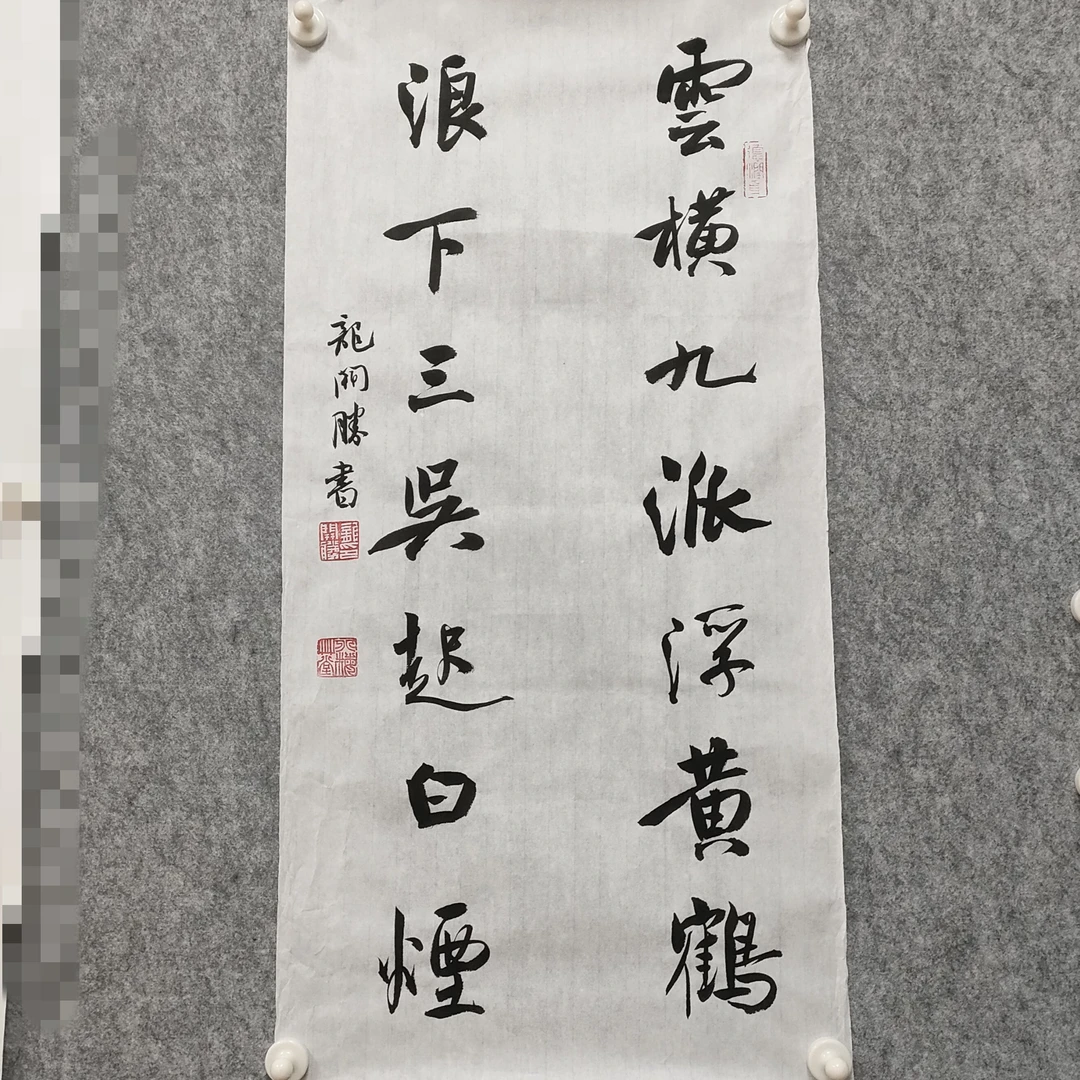 雲橫九派浮黄鶴
浪下三吳起白煙
龍開勝書